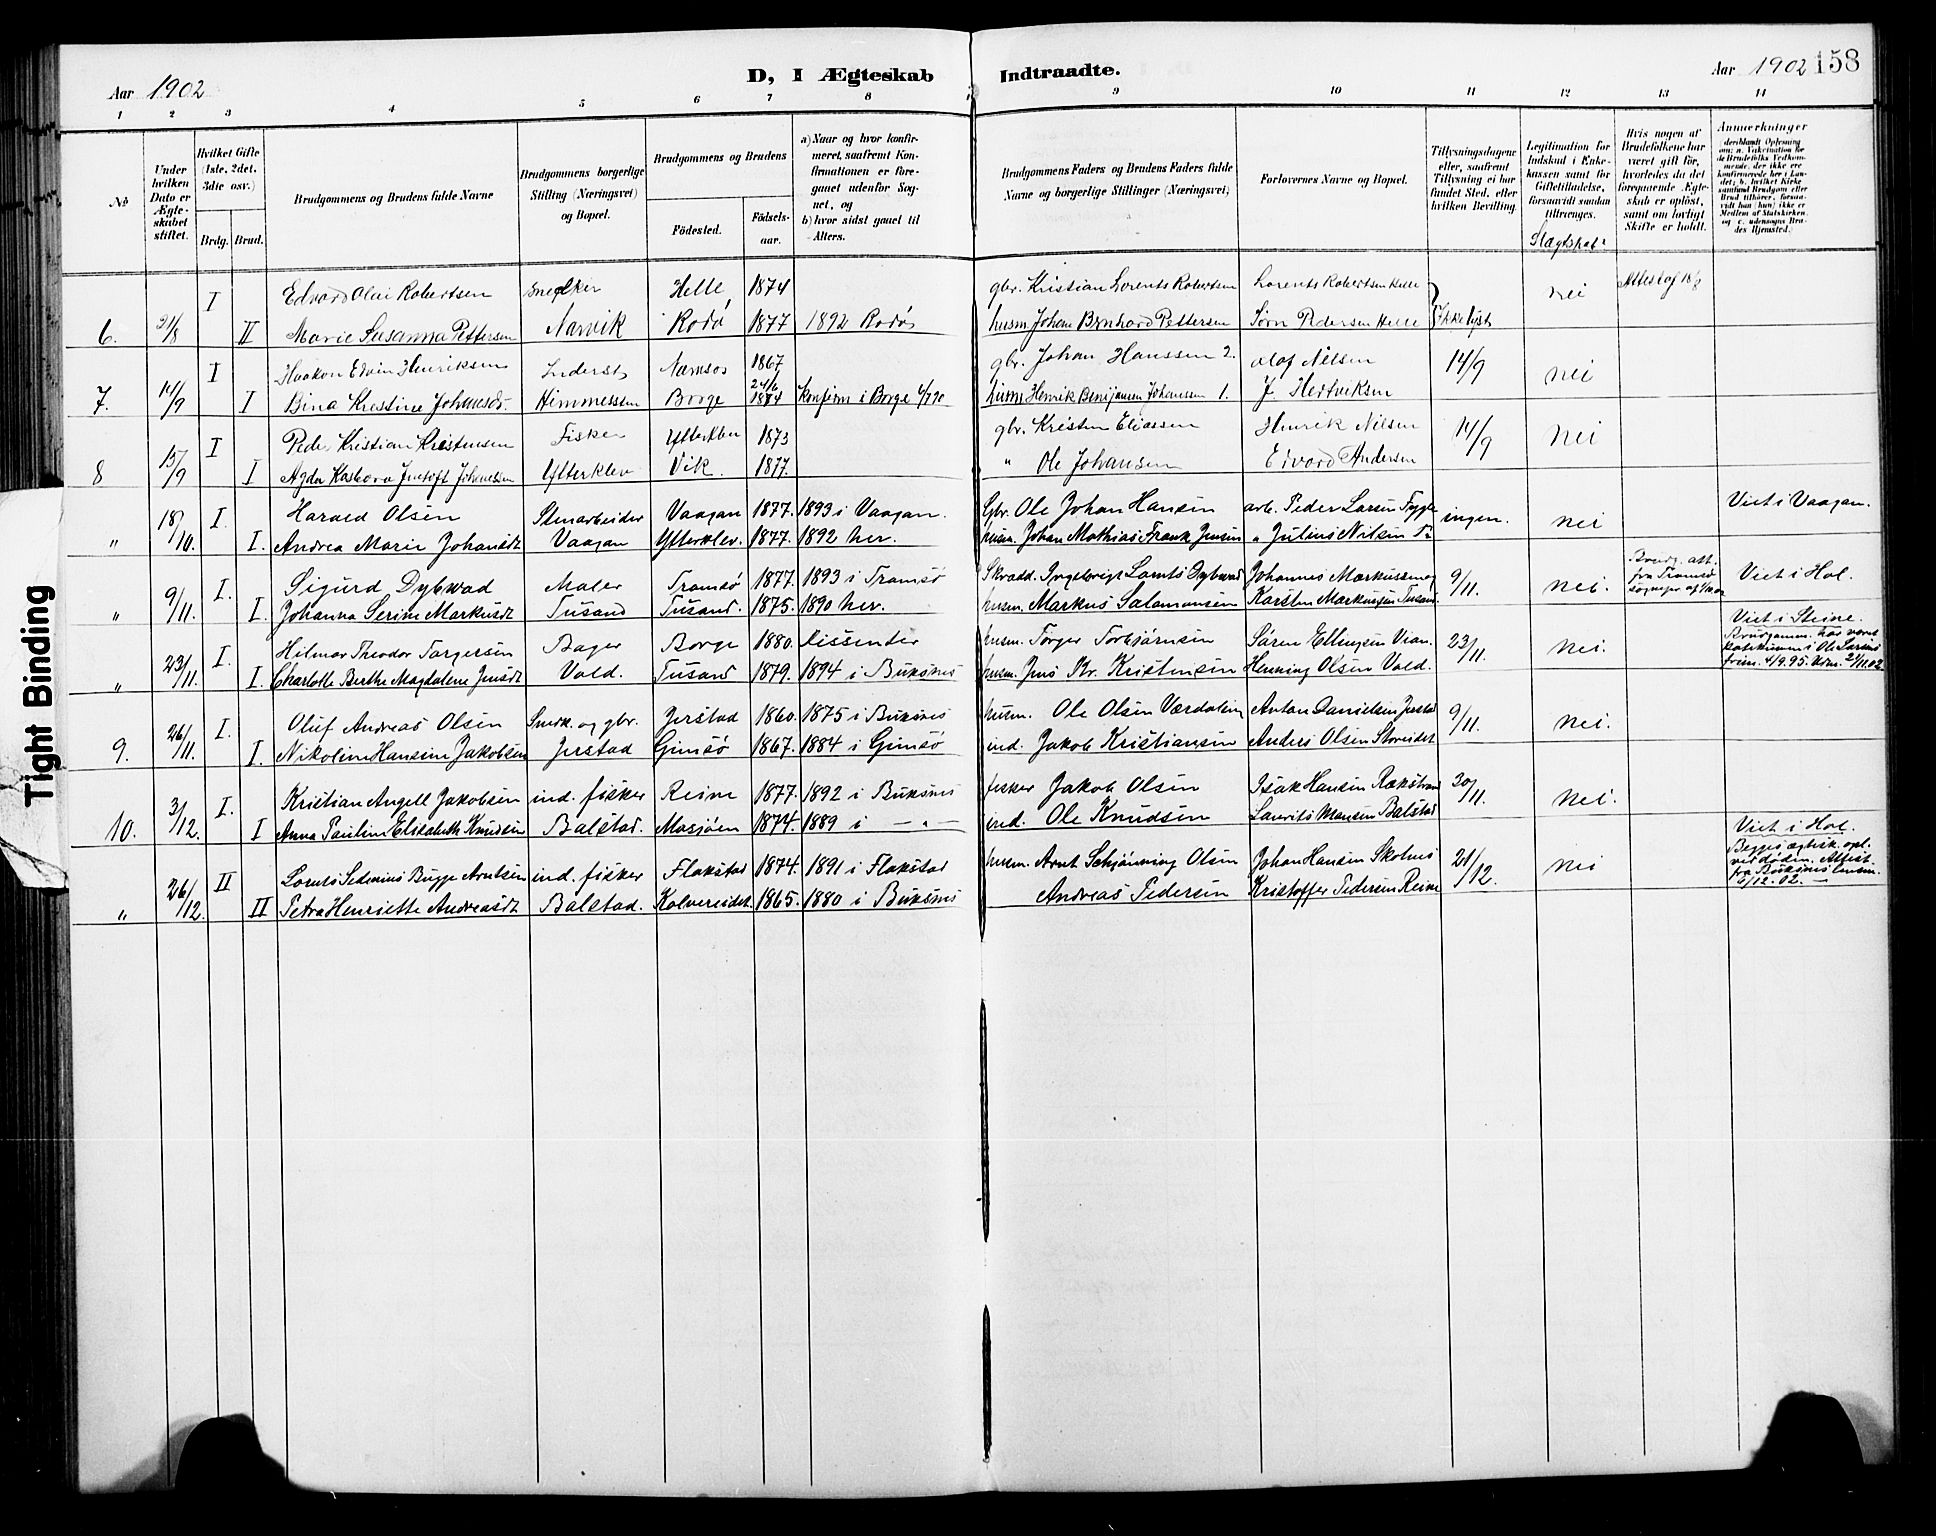 Aar 1902
D, I Ægteskab Indtraadte.
Aar 1902 158
1 2 3 4 5 6 7 8 9 10 11 12 13 14
№
Under hvilken Dato er Ægteskabet stiftet.
Hvilket Gifte (1ste, 2det, 3die osv.)
Brdg. Brud.
Brudgommens og Brudens fulde Navne
Brudgommens borgerlige Stilling (Næringsvei) og Bopæl.
Brudgommens og Brudens
Fødested. Fødselsaar.
a) Naar og hvor konfirmeret, saafremt Konfirmationen er foregaaet udenfor Sognet, og
b) hvor sidst gaaet til Alters.
Brudgommens Faders og Brudens Faders fulde Navne og borgerlige Stillinger (Næringsvei)
Forlovernes Navne og Bopæl.
Tillysningsdagene eller, saafremt Tillysning ei har fundet Sted, efter hvilken Bevilling.
Legitimation for Indskud i Enkekassen samt for Giftetilladelse, forsaavidt saadan tiltrænges.
Slægtskab
Hvis nogen af Brudefolkene har været gift før, hvorledes da det foregaaende Ægteskab er opløst, samt om lovligt Skifte er holdt.
Anmerkninger
6. 21/8 I Edvard Olai Robertsen Snedker Helle 1874 gbr. Kristian Lorents Robertsen Lorents Robertsen Helle nei Attest af 18/8
II Marie Susanna Pettersen Narvik Rodø 1877 1892 Rodø husm. Johan Bernhard Pettersen Sørn Pedersen Helle Ikke lyst
7. 14/9 I Haakon Edvin Henriksen Namsos 1867 gbr. Johan Hanssen 2. Olaf Nilsen 14/9 nei
I Bina Krestine Johnesdt. Borge 24/6 1874 konfirm i Borge husm Henrik Johanssen 1. J. Hertviksen
8 15/9 I Peder Kristian Kristensen Fisker Ytterklev 1873 gbr. Kristen Eliassen Henrik Nilsen 14/9 nei
I Agda Johnessen Ytterklev Vik. 1877. " Ole Johansen Edvard Andersen
" 18/10. I. Harald Olsen Stenarbeider Vaagan 1877. 1893 i Vaagan. Gbr. Ole Johan Hansen arb. Peder Larsen ingen. nei Viet i Vaagan.
I. Andrea Marie Johansdt Vaagan Ytterklev. 1877. 1892 her. husm. Johan Mathias Frank Jensen " Julius Nilsen
" 9/11. I. Sigurd Dybwad Maler Tromsø 1877. 1893 i Tromsø Skradd. Ingebrigt Lornts Dybwad Johannes Markussen og 9/11. nei. Brudg. att. fra Tromsø Viet i Hol.
I. Johanna Serine Markusdt Tusand Tusand. 1875. 1890 her. husm. Markus Salamonsen Karsten Markussen Tusand.
" 23/11. I. Hilmar Theodor Torgersen Bager Borge 1880. Dissenter husm. Torger Torbjørnsen Søren Ellingsen Vian. 23/11. nei. Viet i Steine. Brudgomm. har været
I. Charlotte Berthe Magdalene Jensdt Vold. Tusand 1879. 1894 i Buksnes husm. Jens Kr. Kristensen Henning Olsen Vold.
9. 26/11. I. Oluf Andreas Olsen Snerk. og gbr. Jerstad 1860. 1875 i Buksnes husm. Ole Olsen Værdaling Anton Danielsen Jerstad 9/11. nei.
I. Nikoline Hansine Jakobsen Jerstad Gimsø 1867. 1884 i Gimsø ind. Jakob Kristiansen Anders Olsen Storeidet
10. 3/12. I. Kristian Angell Jakobsen ind. fisker Reine 1877. 1892 i Buksnes fisker Jakob Olsen Isak Hansen 30/11. nei.
I Anna Pauline Elisabeth Knudsen Balstad. Mosjøen 1874. 1889 i — " — ind. Ole Knudsen Laurits Monsen Balstad
" 26/12. II Lornts Sedenius Bugge Arntsen ind. fisker Flakstad 1874. 1891 i Flakstad husm. Arnt Schjønning Olsen Johan Hansen Skotnes 21/12. nei Viet i Hol. Begges ægtesk. opl. ved døden. Attest. fra Buksnes 5/12.02. —
II Petra Henriette Andreasdt Balstad. Kolvereidet 1865. 1880 i Buksnes Andreas Pedersen Kristoffer Pedersen Reine
Tight Binding